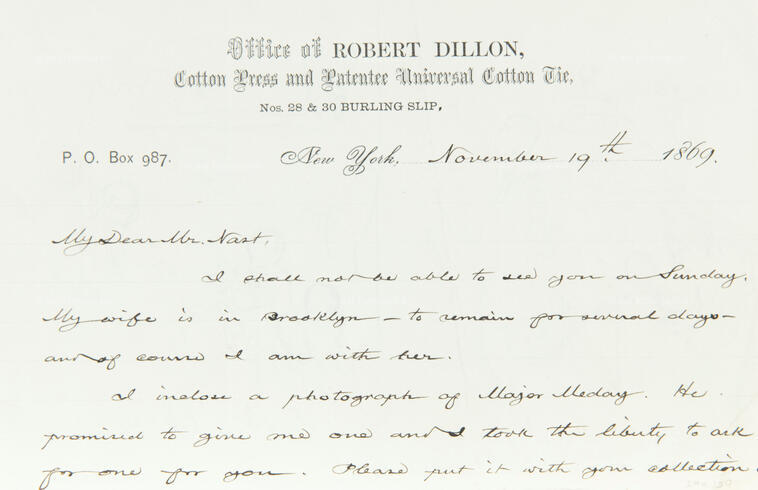 Office of ROBERT DILLON,
Cotton Press and Patentee Universal Cotton Tie,
Nos. 28 & 30 BURLING SLIP,
P. O. Box 987.
New York, November 19th. 1869.
My Dear Mr. Nast,
I shall not be able to see you on Sunday.
My wife is in Brooklyn – to remain for several days –
and of course I am with her.
I inclose a photograph of Major Meday. He
promised to give me one and I took the liberty to ask
for one for you. Please put it with your collection.